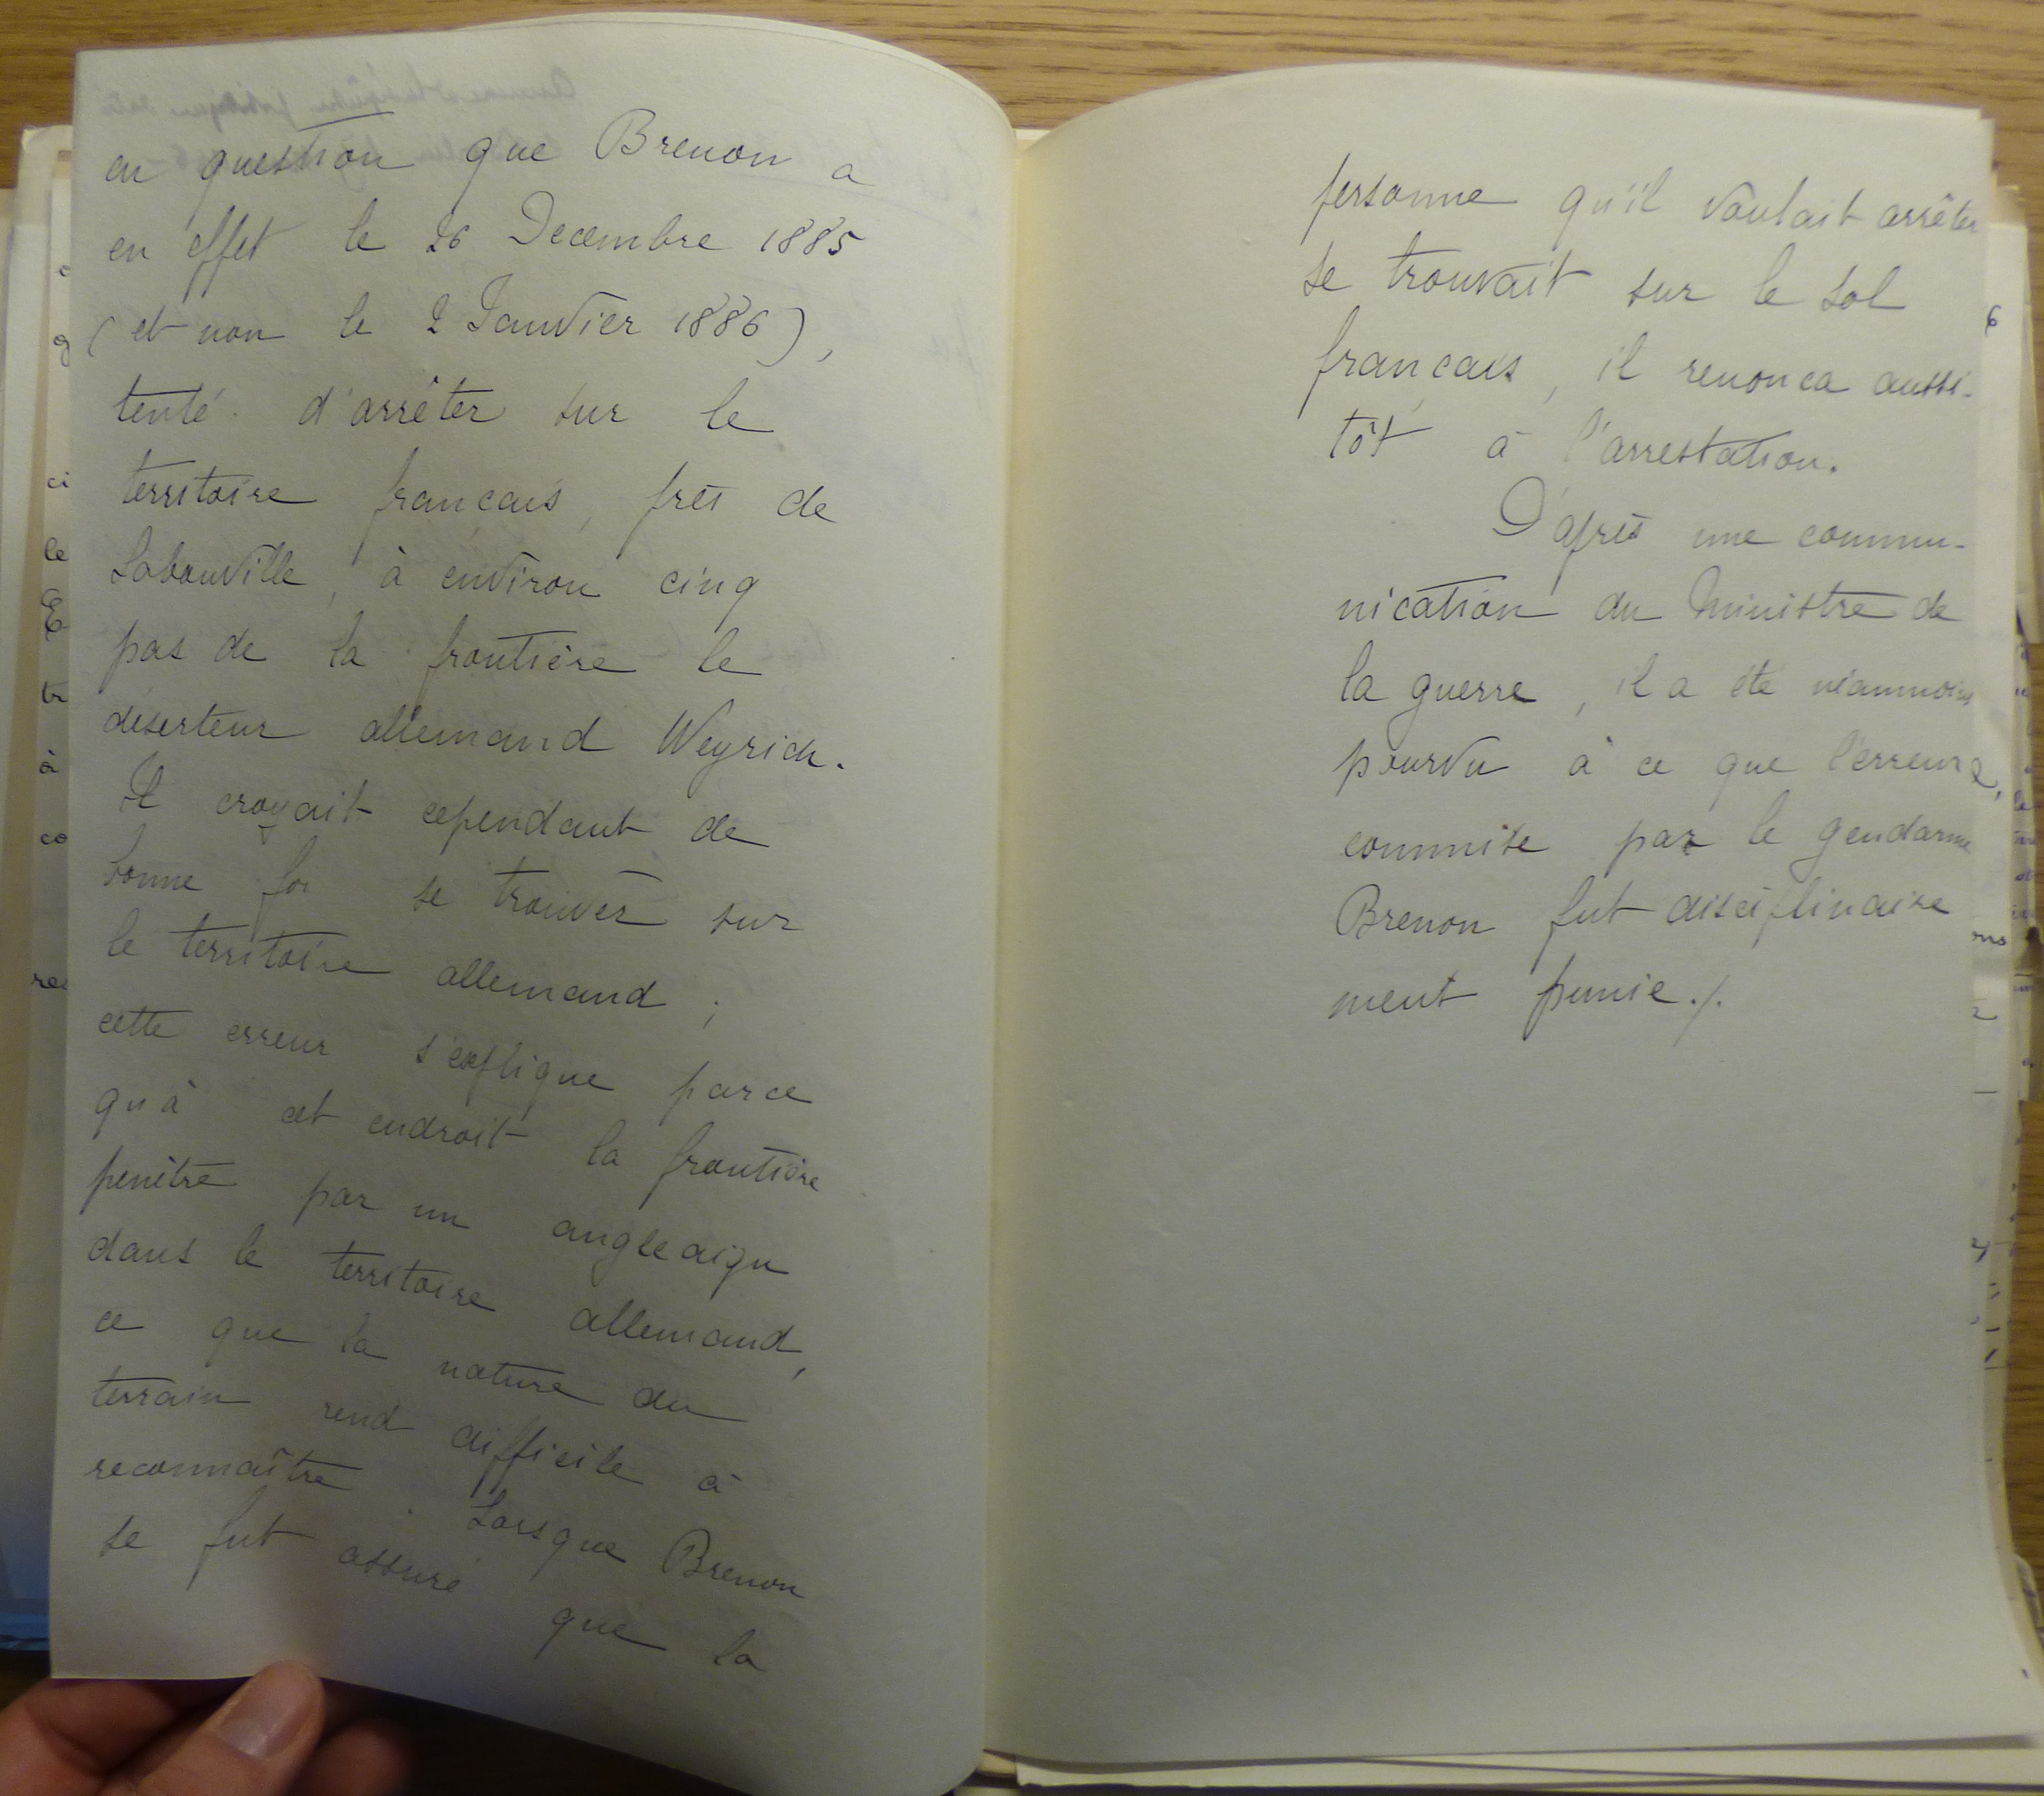 en question que Brenon a
en effet le 26 Decembre 1885
(et non le 2 Janvier 1886),
tenté d'arrêter sur le
territoire français, près de
Labauville, à environ cinq
pas de la frontière le
déserteur allemand Weyrich.
Il croyait cependant de
bonne foi se trouver sur
le territoire allemand ;
cette erreur s'explique parce
qu'à cet endroit la frontière
penètre par un angle aigu
dans le territoire allemand,
ce que la nature du
terrain rend difficile à
reconnaître. Lorsque Brenon
se fut assuré que la
personne qu'il voulait arrêter
se trouvait sur le sol
français, il renonça aussi-
tôt à l'arrestation.
D'après une commu-
nication du Ministre de
la guerre, il a été néanmoins
pourvu à ce que l'erreur,
commise par le gendarme
Brenon fut disciplinaire
ment punie./.